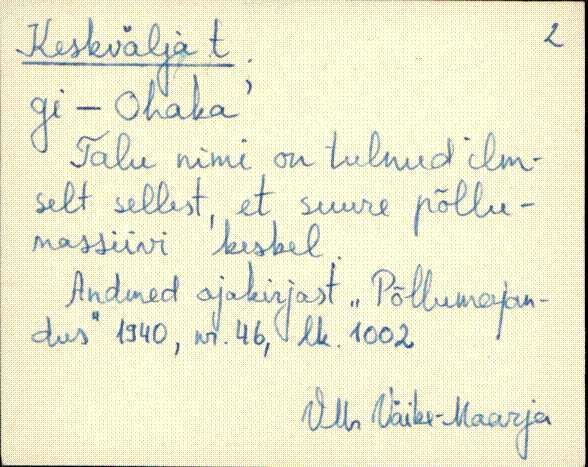 Keskvälja t. 2
gi – Ohaka
Talu nimi on tulnud ilm-
selt sellest, et suure põllu-
massiivi keskel.
Andmed ajakirjast „Põllumajan-
dus" 1940, nr. 46, lk. 1002
VMr Väike-Maarja